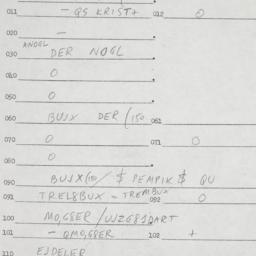 011 - QS KRIST+ 012 0
020 -
030 ANOGL DER NOGL
040 0
050 0
060 BUJX DER (150 061
070 0 071 0
080 0
090 BUJX(10/ $ PEMPIK $ QU
091 TREL8BUX - TREMBUX 092 0
100 MO,G8ER /UJZG81DART
101 - QMO,G8ER 102 +
110 EJDELER